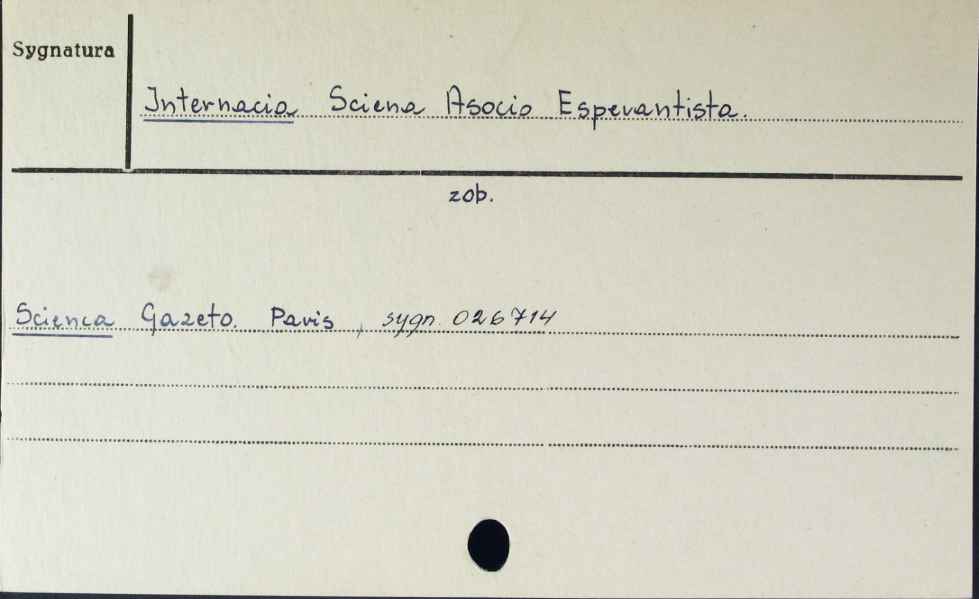 Sygnatura
Internacia Sciena Asocio Esperantista.
zob.
Scienca Gazeto. Paris, sygn. 026714